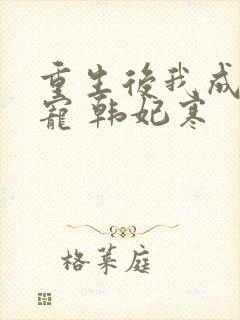 重生後我成
寵 韩妃寒
格莱庭